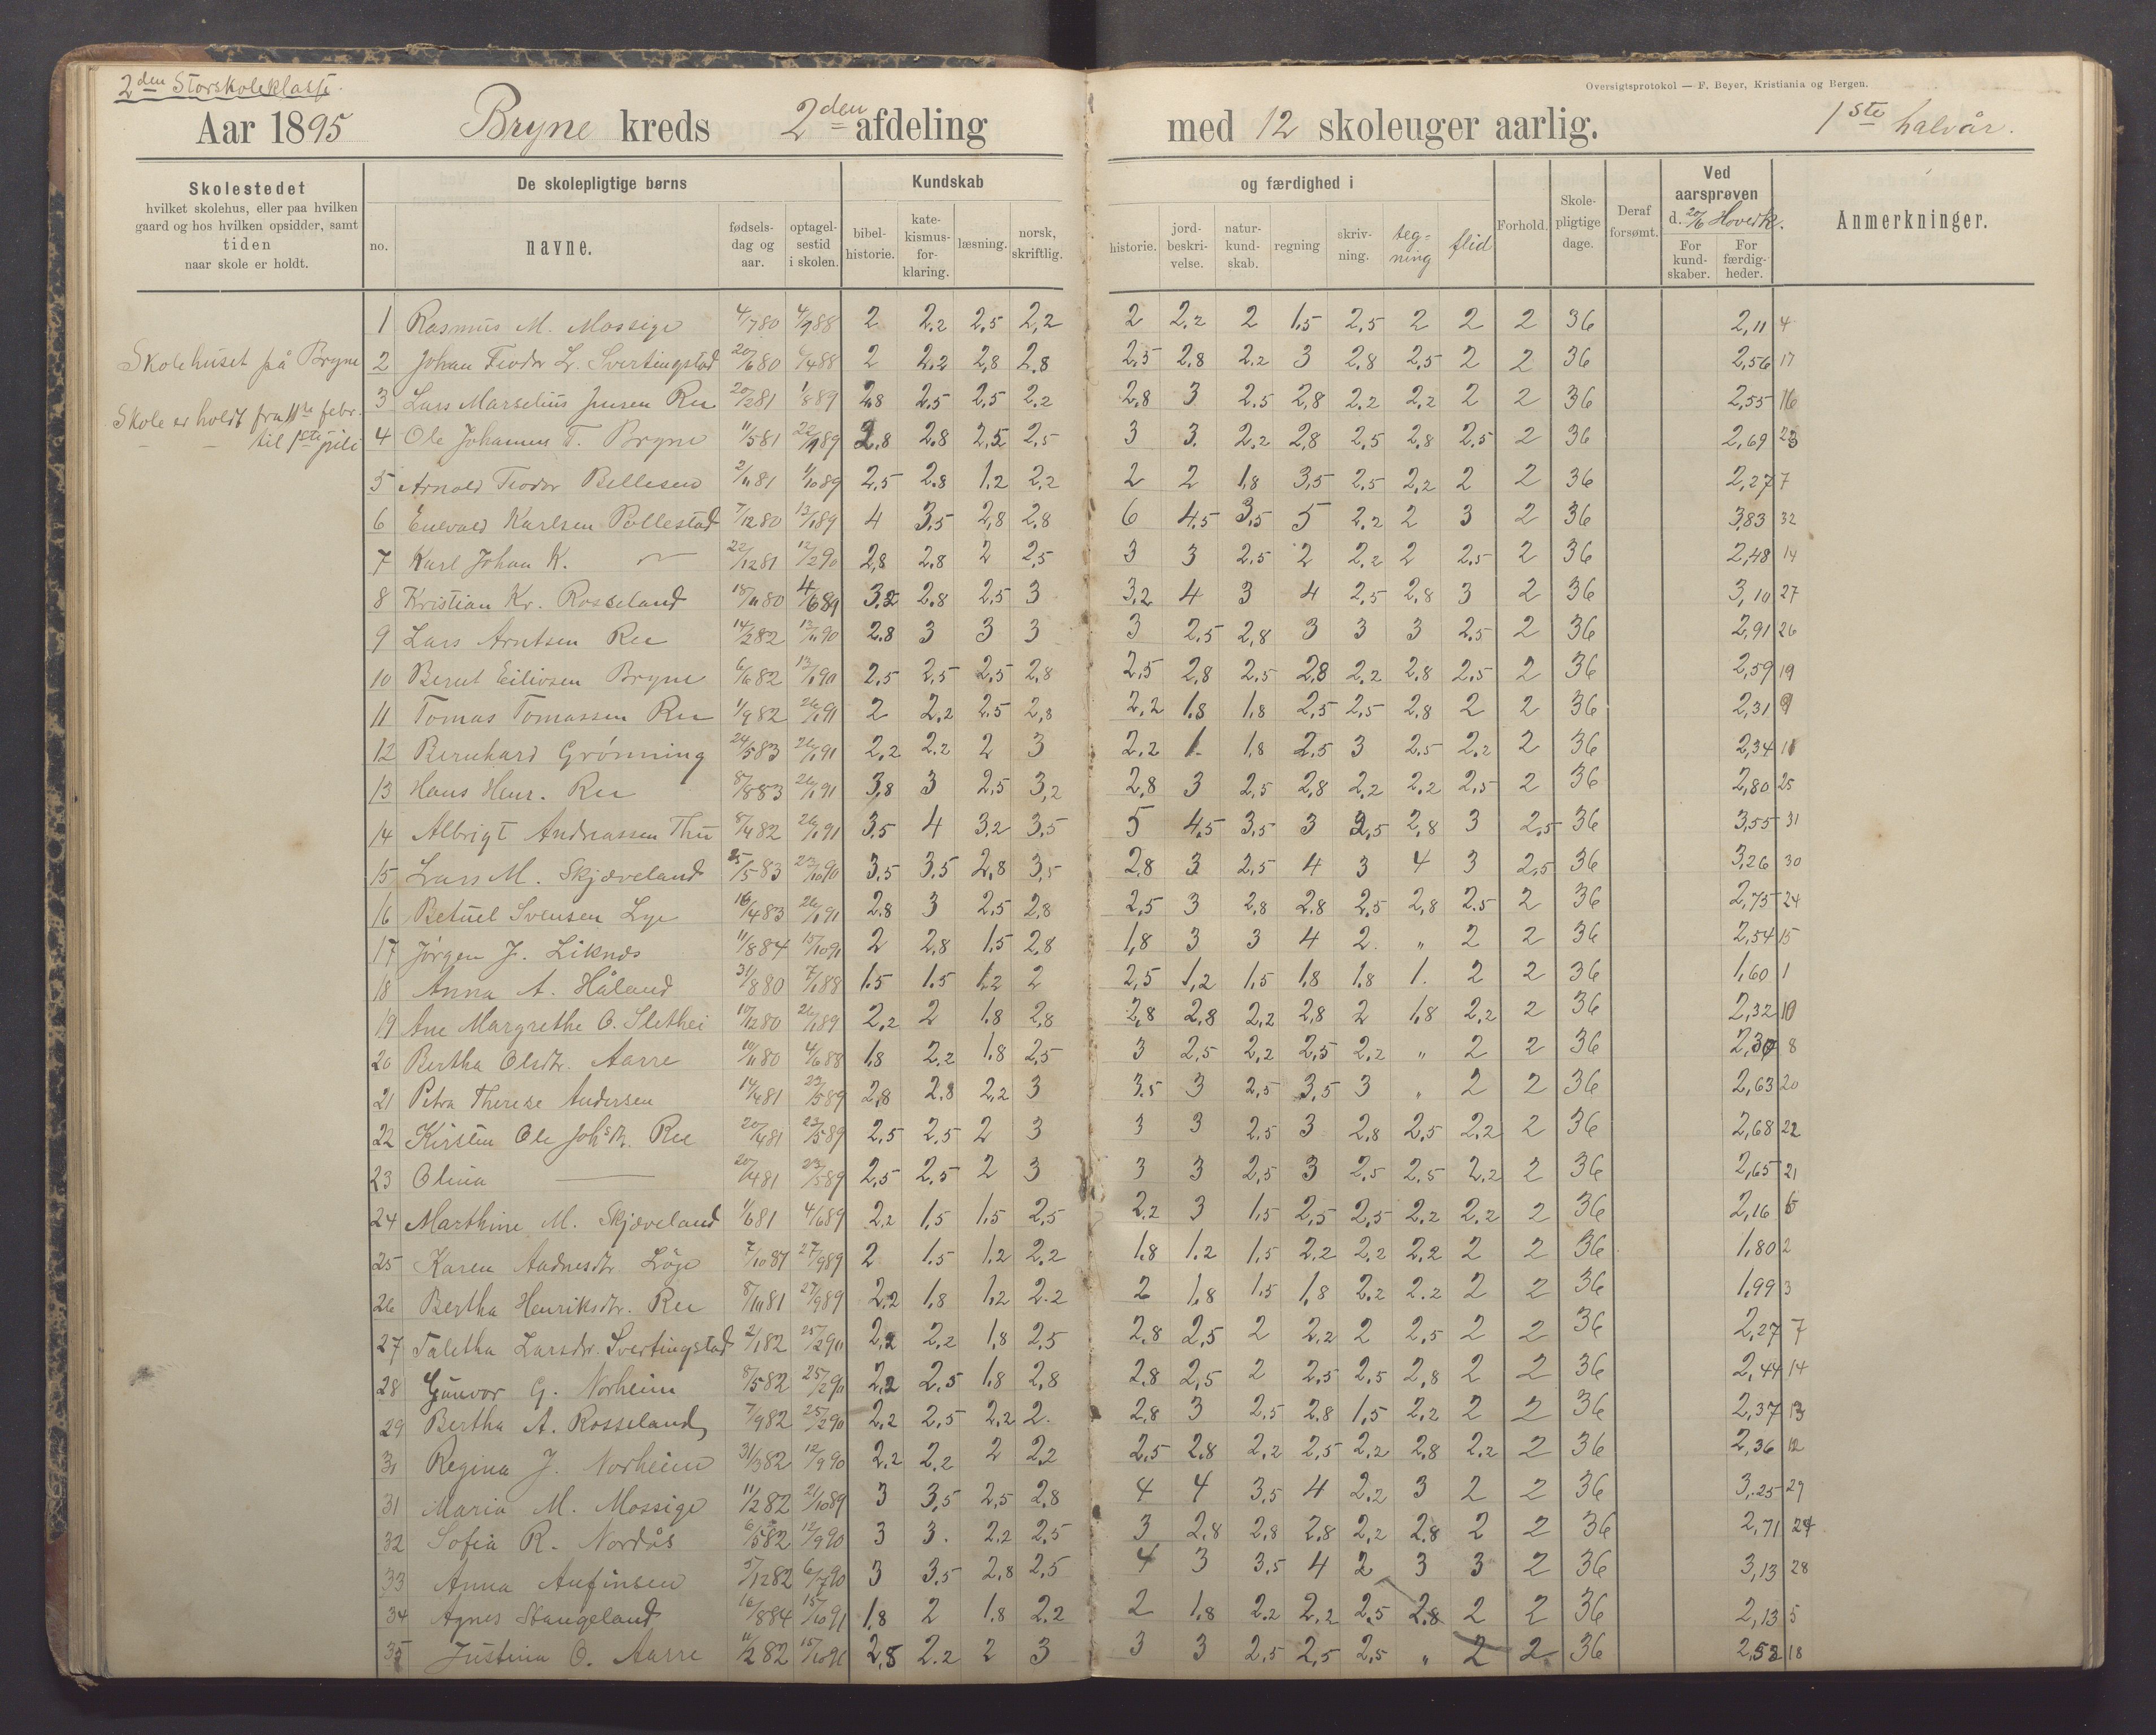 2den Storskoleklasse.
Oversigtsprotokol — F. Beyer, Kristiania og Bergen.
Aar 1895 Bryne kreds 2den afdeling med 12 skoleuger aarlig. 1ste halvår.
Skolestedet hvilket skolehus, eller paa hvilken gaard og hos hvilken opsidder, samt tiden naar skole er holdt.
De skolepligtige børns
no. navne. fødsels-dag og aar. optagel-sestid i skolen.
Kundskab og færdighed i
bibel-historie. kate-kismus-for-klaring. læsning. norsk, skriftlig. historie. jord-beskri-velse. natur-kund-skab. regning skriv-ning. teg-ning flid
Forhold. Skole-pligtige dage. Deraf forsømt.
Ved aarsprøven d. 20/6 Hoverk.
For kund-skaber. For færdig-heder.
Anmerkninger.
Skolehuset på Bryne
Skole er holdt fra 11te febr.
— — til 1ste juli
1 Rasmus M. Mossige 4/7 80 4/7 88 2 2.2 2,5 2,2 2 2.2 2 1,5 2,5 2 2 2 36 2,11 4
2 Johan Teodor L. Svertingstad 20/6 80 6/4 88 2 2,2 2,8 2.8 2,5 2,8 2.2 3 2,8 2,5 2 2 36 2,56 17
3 Lars Marselius Jensen Ree 20/2 81 1/8 89 2,8 2,5 2,5 2.2 2,8 3 2,5 2,8 2,2 2,2 2 2 36 2,55 16
4 Ole Johannes T. Bryne 11/5 81 2,8 2,8 2,5 2,5 3 3 2,2 2,8 2,5 2,8 2.5 2 36 2,69 23
5 Arnold Teodor Bellesen 2/11 81 1/10 89 2,5 2.8 1.2 2.2 2 2 1,8 3,5 2.5 2,2 2 2 36 2,27 7
6 Enevald Karlsen Pollestad 7/12 80 13/1 89 4 3,5 2,8 2,8 6 4,5 3,5 5 2.2 2 3 2 36 3,83 32
7 Karl Johan K. — 22/12 81 12/2 90 2,8 2.8 2 2,5 3 3 2,5 2 2,2 2 2,5 2 36 2,48 14
8 Kristian Kr. Rosseland 18/11 80 4/6 89 3,2 2,8 2,5 3 3,2 4 3 4 2,5 2,8 3 2 36 3,10 27
9 Lars Arntsen Ree 14/2 82 13/11 90 2.8 3 3 3 3 2,5 2,8 3 3 3 2,5 2 36 2,91 26
10 Bernt Eilivsen Bryne 6/6 82 13/11 90 2,5 2,5 2,5 2,8 2,5 2,8 2,5 2,8 2,2 2,8 2,5 2 36 2,59 19
11 Tomas Tomassen Ree 1/9 82 26/1 91 2 2,2 2,5 2,8 2,2 1,8 1,8 2,5 2,5 2,8 2 2 36 2,31 9
12 Bernhard Grønning 24/5 83 26/1 91 2,2 2.2 2 3 2,2 1. 1,8 2,5 3 2,5 2,2 2 36 2,34 11
13 Hans Henr. Ree 8/8 83 26/1 91 3,8 3 2,5 3,2 2,8 3 2,5 2,8 2,2 2,2 2,5 2 36 2,80 25
14 Albrigt Andreassen Thu 8/4 82 26/1 91 3,5 4 3,2 3,5 5 4,5 3,5 3 2,5 2,8 3 2,5 36 3,55 31
15 Lars M. Skjæveland 25/5 83 23/10 90 3,5 3,5 2,8 3,5 2,8 3 2,5 4 3 4 3 2,5 36 3,26 30
16 Betuel Svensen Lye 16/4 83 26/1 91 2,8 3 2,5 2,8 2,5 3 2,8 2,8 2,5 2,8 2,5 2 36 2,75 24
17 Jørgen J. Liknes 11/8 84 15/10 91 2 2,8 1,5 2,8 1,8 3 3 4 2. „ 2 2 36 2,54 15
18 Anna A. Håland 31/8 80 7/1 88 1,5 1,5 1,2 2 2,5 1,2 1,5 1,8 1,8 1. 2 2 36 1,60 1
19 Ane Margrethe O. Slethei 10/12 80 26/1 89 2,2 2 1,8 2,8 2,8 2,8 2,2 2,8 2 1,8 2,2 2 36 2,32 10
20 Bertha Olsdtr. Aarre 10/11 80 4/6 88 1,8 2.2 1,8 2,5 3 2,5 2,2 2,5 2,2 „ 2 2 36 2,30 8
21 Petra Therese Andersen 14/4 81 23/5 89 2,8 2,8 2,2 3 3,5 3 2,5 3,5 3 „ 2 2 36 2,63 20
22 Kirsten Ole Johs.dtr. Ree 20/4 81 23/5 89 2,5 2,5 2 3 3 3 2,5 3 2,8 2,5 2,2 2 36 2,68 22
23 Olina — 20/4 81 23/5 89 2,5 2,5 2 3 3 3 2,5 3 2,5 2,5 2,2 2 36 2,65 21
24 Marthine M. Skjæveland 1/6 81 4/6 89 2,2 1,5 1,5 2,5 2,2 3 1,5 2,5 2,5 2,2 2,2 2 36 2,16 6
25 Karen Andresdtr. Löge 7/10 81 27/9 89 2 1.5 1,2 2,2 1,8 1.2 1,5 2,2 2,2 2,2 2 2 36 1,80 2
26 Bertha Henriksdtr. Ree 8/11 81 27/9 89 2,2 1,8 1,2 2.2 2 1,8 1,5 1,8 2,2 2.2 2 2 36 1,99 3
27 Taletha Larsdtr. Svertingstad 2/1 82 25/2 90 2,2 2,2 1,8 2,5 2,8 2,5 2 2,2 2 2,5 2 2 36 2,27 7
28 Gunvor G. Norheim 8/5 82 25/2 90 2,2 2,5 1,8 2,8 2,8 2,5 2 2,5 2,5 2,8 2 2 36 2,44 14
29 Bertha A. Rosseland 7/9 82 25/2 90 2,2 2,5 2,2 2. 2,8 3 2,5 2,8 1,5 2,2 2 2 36 2,37 13
Regina J. Norheim 31/3 82 12/9 90 2,2 2,2 2 2,2 2,5 2,8 2,2 2,5 2,2 2,8 2,2 2 36 2,36 12
31 Maria M. Mossige 11/2 82 21/10 89 3 3,5 2,5 2,8 4 4 3,5 4 2,2 3 2 2 36 3,25 29
32 Sofia R. Nordås 6/5 82 12/9 90 3 3. 2,2 2,5 3 2,8 2,8 2,8 2,2 2,8 2 2 36 2,71 24
33 Anna Aufinsen 5/12 82 6/7 90 3 3,5 2,8 2,5 4 3 3,5 4 2 3 3 2 36 3,13 28
34 Agnes Stangeland 16/8 84 15/10 91 1,8 2 1,8 2,2 2 1,8 2,2 2,2 2,5 2,8 2 2 36 2,13 5
35 Justina O. Aarre 11/2 82 15/10 91 2,8 2.2 2 3 3 3 2,5 2,5 2,5 „ 2 2 36 2,58 18